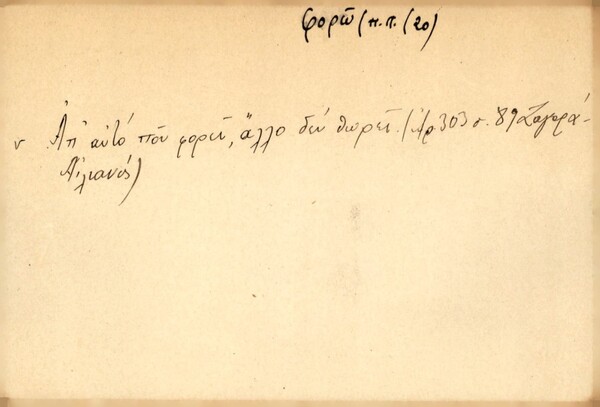 φορῶ (π.π. (20)
ν Ἀπ' αὐτό ποὺ φορεῖ, ἄλλο δέν θωρεῖ. (Ἀρ. 303 σ. 89 Ζαγορά-
Αἰλιανός)